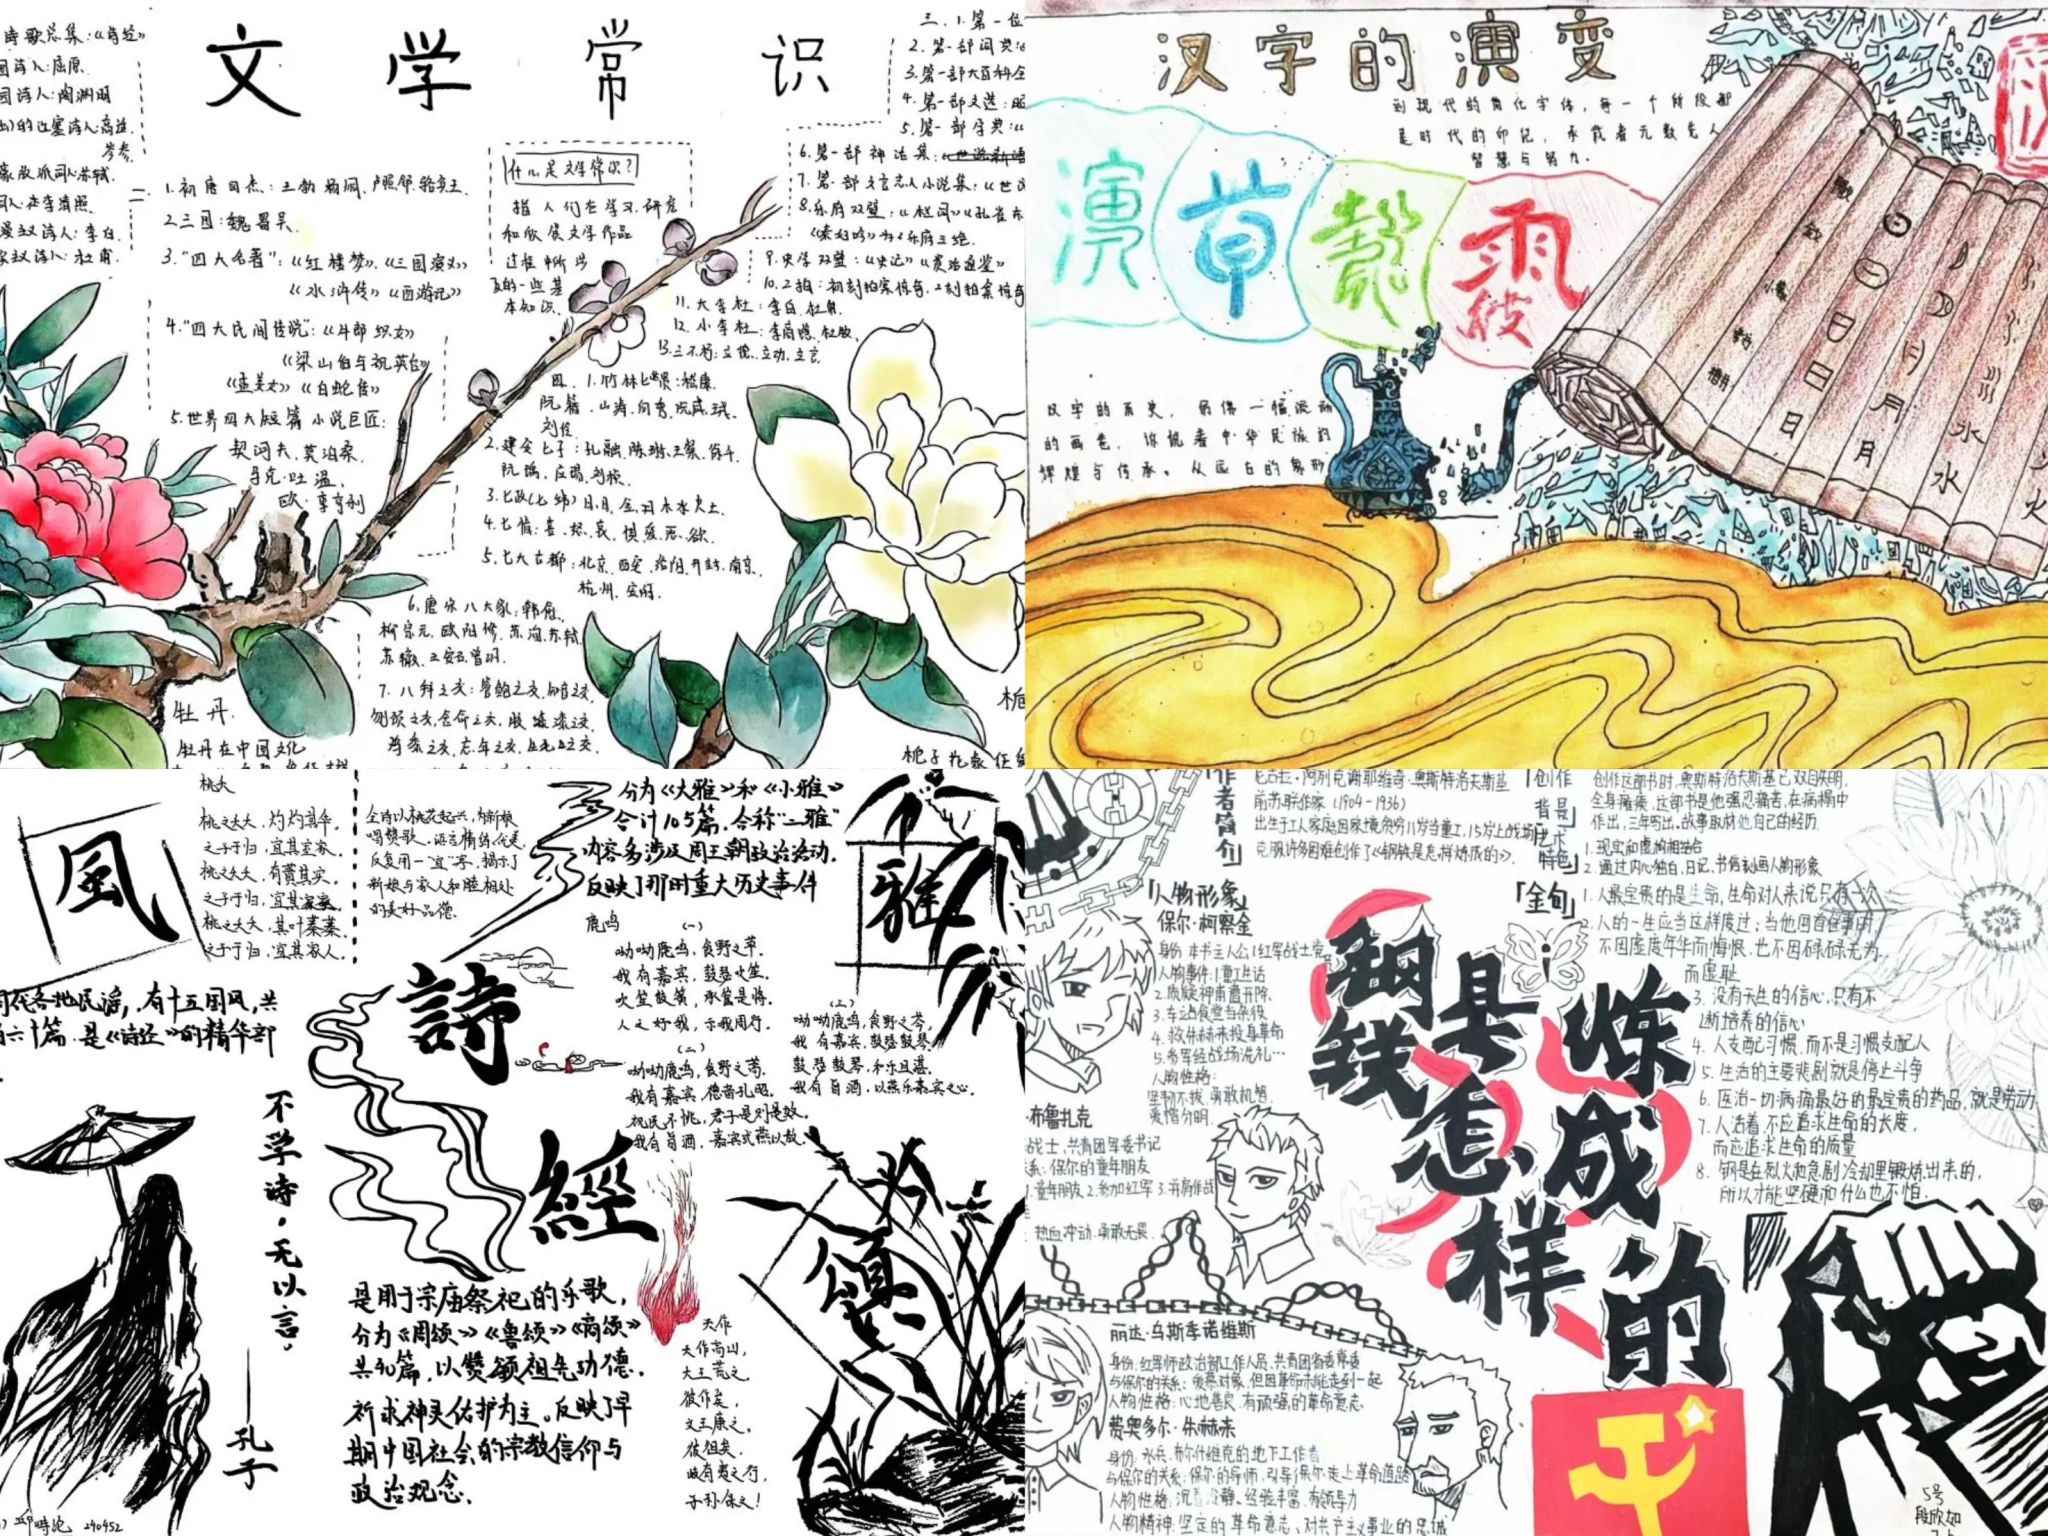 文学常识
圆诗人:陶渊明
岑参.
二
1.初唐四杰:王勃.杨炯.卢照邻.骆宾王.
2.三国:魏蜀吴.
3."四大名著":《红楼梦》.《三国演义》
《水浒传》《西游记》
4."四大民间传说":《牛郎织女》
《梁山伯与祝英台》
《孟姜女》《白蛇传》
5.世界四大短篇小说巨匠:
契诃夫.莫泊桑.
马克·吐温.
欧·亨利
什么是文学常识?
指人们在学习.研究
和欣赏文学作品
过程中所涉
及的一些基
本知识.
三.1.第一位
6.第一部神话集:
9.史学双璧:《史记》《资治通鉴》
11.大李杜:李白.杜甫.
12.小李杜:李商隐.杜牧.
13.三不朽:立德.立功.立言.
四.1.竹林七贤:嵇康.
阮籍.山涛.向秀.阮咸.王戎.
刘伶
2.建安七子:孔融.陈琳.王粲.徐干.
阮瑀.应玚.刘桢.
3.七政(七纬)日.月.金.木水火土.
4.七情:喜.怒.哀.惧.爱.恶.欲.
5.七大古都:北京.西安.洛阳.开封.南京.
杭州.安阳.
6.唐宋八大家:韩愈.
柳宗元.欧阳修.苏洵.苏轼
苏辙.王安石.曾巩.
牡丹.
牡丹在中国文化
汉字的演变
到现代的简化字体,每一个阶段都
是时代的印记,承载着无数先人
智慧与努力.
演草
汉字的历史,仿佛一幅流动
的画卷,诉说着中华民族的
辉煌与传承。从远古的象形
日日日日
月月月
水水
火
風
桃夭
桃之夭夭,灼灼其华。
之子于归,宜其室家。
桃之夭夭,有蕡其实。
之子于归,宜其家室。
桃之夭夭,其叶蓁蓁。
之子于归,宜其家人。
全诗以桃花起兴,为新娘
唱赞歌。语言精练优美,
反复用一"宜"字,揭示了
新娘与家人和睦相处
的美好品德。
周代各地民谣,有十五国风,共
百六十篇,是《诗经》的精华部
分为《大雅》和《小雅》
合计105篇,合称"二雅"
内容多涉及周王朝政治活动,
反映了那时重大历史事件
雅
鹿鸣
(一)
呦呦鹿鸣,食野之苹。
我有嘉宾,鼓瑟吹笙。
吹笙鼓簧,承筐是将。
人之好我,示我周行。
(二)
呦呦鹿鸣,食野之蒿。
我有嘉宾,德音孔昭。
视民不恌,君子是则是效。
我有旨酒,嘉宾式燕以敖。
(三)
呦呦鹿鸣,食野之芩。
我有嘉宾,鼓瑟鼓琴。
鼓瑟鼓琴,和乐且湛。
我有旨酒,以燕乐嘉宾之心。
詩經
不学诗,无以言。
——孔子
頌
是用于宗庙祭祀的乐歌,
分为《周颂》《鲁颂》《商颂》
共40篇,以赞颂祖先功德.
祈求神灵佑护为主。反映了早
期中国社会的宗教信仰与
政治观念.
天作
天作高山,
大王荒之。
彼作矣,
文王康之。
彼徂矣,
岐有夷之行,
子孙保之!
240452
作者简介
尼古拉·阿列克谢耶维奇·奥斯特洛夫斯基
前苏联作家(1904-1936)
出生于工人家庭因家境贫穷11岁当童工,15岁上战场
克服许多困难创作了《钢铁是怎样炼成的》.
创作背景
创作这部书时,奥斯特洛夫斯基已双目失明,
全身瘫痪,这部书是他强忍痛苦,在病榻中
作出,三年写出.故事取材他自己的经历.
艺术特色
1.现实和虚构相结合
2.通过内心独白,日记,书信刻画人物形象
「人物形象」
保尔·柯察金
身份:本书主人公1红军战士党
人物事件:1童工生活
2.质疑神甫遭开除.
3.车站食堂当杂役
4.救朱赫来投身革命
5.参军经战场洗礼…
人物性格:
坚韧不拔.勇敢机智.
爱憎分明.
战士,共青团军委书记
关系:保尔的童年朋友
1.童年朋友2.参加红军3.并肩作战
热血冲动.勇敢无畏.
「金句」
1.人最宝贵的是生命,生命对人来说只有一次
2.人的一生应当这样度过:当他回首往事时,
不因虚度年华而悔恨.也不因碌碌无为
而羞耻
3.没有天生的信心,只有不
断培养的信心
4.人支配习惯,而不是习惯支配人
5.生活的主要悲剧就是停止斗争
6.医治一切病痛最好的最宝贵的药品,就是劳动
7.人活着,不应追求生命的长度,
而应追求生命的质量
8.钢是在烈火和急剧冷却里锻炼出来的,
所以才能坚硬和什么也不怕.
钢铁是怎样炼成的
丽达·乌斯季诺维斯
身份:红军师政治部工作人员、共青团省委常委
与保尔的关系:爱慕对象,但因革命未能走到一起
人物性格:心地善良.有顽强的革命意志
费奥多尔·朱赫来
身份:水兵,布尔什维克的地下工作者
与保尔的关系:保尔的导师,引导保尔走上革命道路
人物性格:沉着冷静、经验丰富,有领导力
人物精神:坚定的革命意志、对共产主义事业的忠诚
5号
段欣如